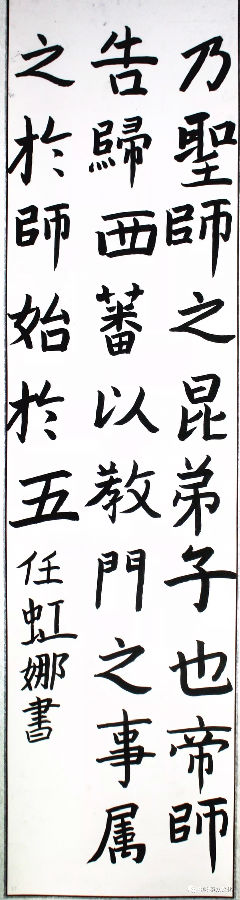 乃聖師之昆弟子也帝師
告歸西蕃以教門之事属
之於師始於五
任虹娜書